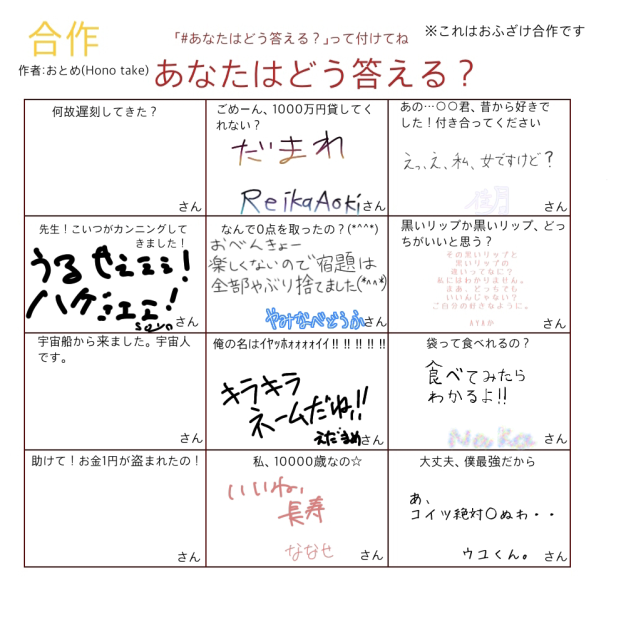 合作
「#あなたはどう答える？」って付けてね
※これはおふざけ合作です
作者:おとめ(Hono take)
あなたはどう答える？
何故遅刻してきた？
さん
ごめーん、1000万円貸してく
れない？
だまれ
ReikaAoki
さん
あの…○○君、昔から好きで
した！付き合ってください
えっ、え、私、女ですけど？
さん
先生！こいつがカンニングして
きました！
うるせェェェェ!
ハゲェェェ!
さん
なんで0点を取ったの？(*^^*)
おべんきょー
楽しくないので宿題は
全部やぶり捨てました(*^^*)
やみなべどうふ
さん
黒いリップか黒いリップ、どっ
ちがいいと思う？
その黒いリップと
黒いリップの
違いってなに？
私にはわかりません。
まあ、どっちでも
いいんじゃない？
ご自分の好きなように。
AYAか
さん
宇宙船から来ました。宇宙人
です。
さん
俺の名はｲﾔｯﾎｫｫｫｫｲｲ!! !! !! !! !!
キラキラ
ネームだね!!
えだまめ
さん
袋って食べれるの？
食べてみたら
わかるよ!!
さん
助けて！お金1円が盗まれたの！
さん
私、10000歳なの☆
いいね、
長寿
ななせ
さん
大丈夫、僕最強だから
あ、
コイツ絶対〇ぬわ・・
ウユくん。
さん